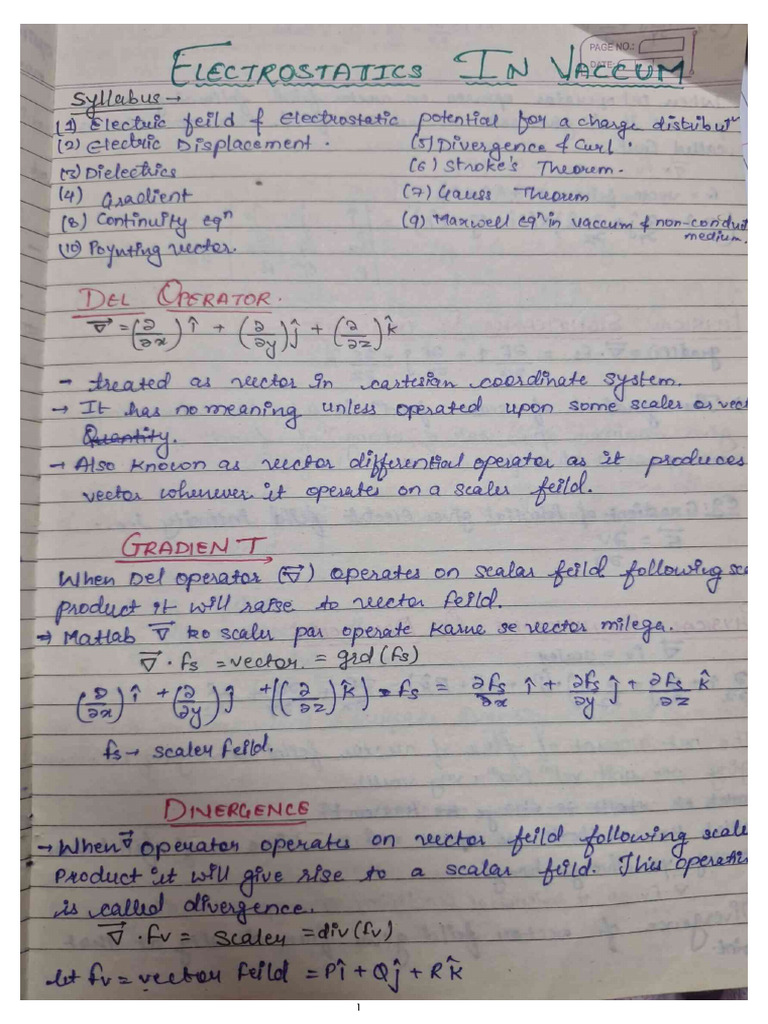 PAGE NO.:
DATE:
ELECTROSTATICS IN VACCUM
Syllabus →
(1) Electric feild & Electrostatic potential for a charge distributn
(2) Electric Displacement. (5) Divergence & Curl.
(3) Dielectrics (6) Stroke's Theorem.
(4) Gradient (7) Gauss Theorem
(8) Continuity eqn (9) Maxwell eqn in vaccum & non-conduct
medium.
(10) Poynting vector.
DEL OPERATOR.
∇⃗ = (∂/∂x) î + (∂/∂y) ĵ + (∂/∂z) k̂
→ treated as vector in cartesian coordinate system.
→ It has no meaning unless operated upon some scaler or vect
Quantity.
→ Also known as vector differential operator as it produces
vector whenever it operates on a scaler feild.
GRADIENT
When Del operator (∇⃗) operates on scalar feild following sca
product it will raise to vector feild.
→ Matlab ∇⃗ ko scaler par operate karne se vector milega.
∇⃗ · fs = vector = grd (fs)
(∂/∂x) î + (∂/∂y) ĵ + ((∂/∂z) k̂) · fs = ∂fs/∂x î + ∂fs/∂y ĵ + ∂fs/∂z k̂
fs → scaler feild.
DIVERGENCE
→ When ∇⃗ operator operates on vector feild following scale
Product it will give rise to a scalar feild. This operatio
is called divergence.
∇⃗ · fv = scaler = div (fv)
let fv = vector feild = Pî + Qĵ + Rk̂
1